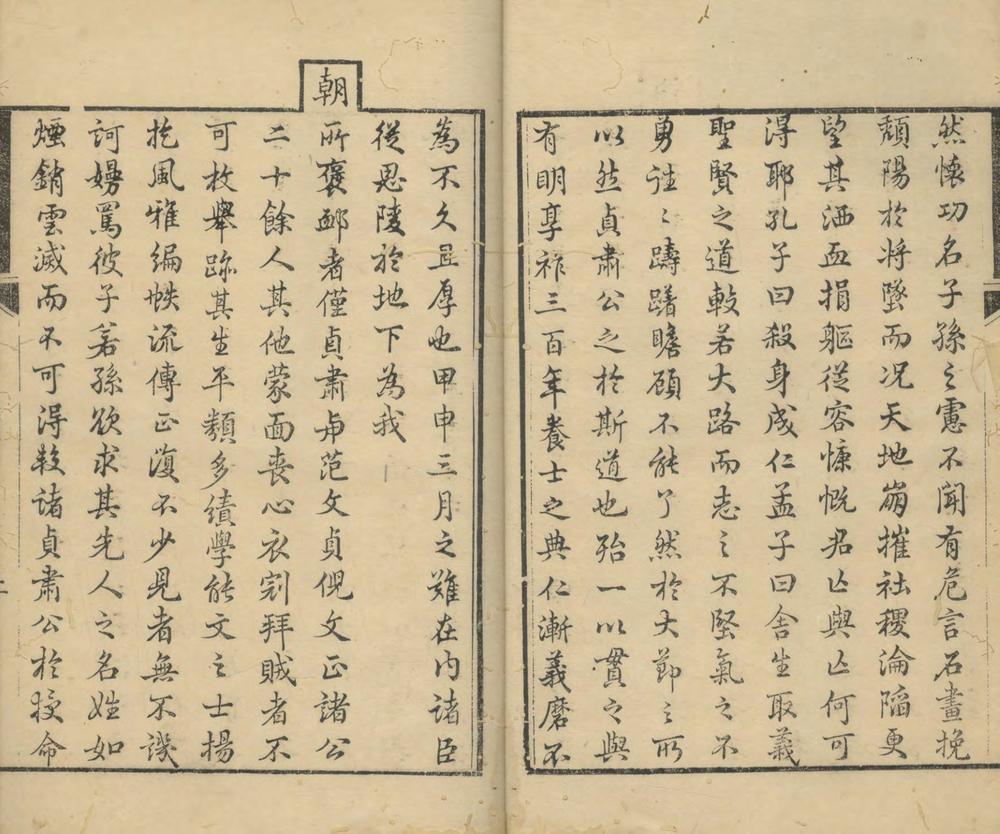 然懷功名子孫之慮不聞有危言石畫挽
頹陽於將墜而况天地崩摧社稷淪陷更
望其洒血捐軀從容慷慨君亡與亡何可
得耶孔子曰殺身成仁孟子曰舍生取義
聖賢之道較若大路而志之不堅氣之不
勇往往躊躇瞻顧不能了然於大節之所
以然貞肅公之於斯道也殆一以貫之與
有明享祚三百年養士之典仁漸義磨不
為不久且厚也甲申三月之難在内諸臣
從思陵於地下為我
朝
所褒衈者僅貞肅與范文貞倪文正諸公
二十餘人其他蒙面喪心衣冠拜賊者不
可枚舉跡其生平類多績學能文之士揚
扢風雅編帙流傳正復不少見者無不譏
訶嫚罵彼子若孫欲求其先人之名姓如
煙銷雲滅而不可得較諸貞肅公於授命